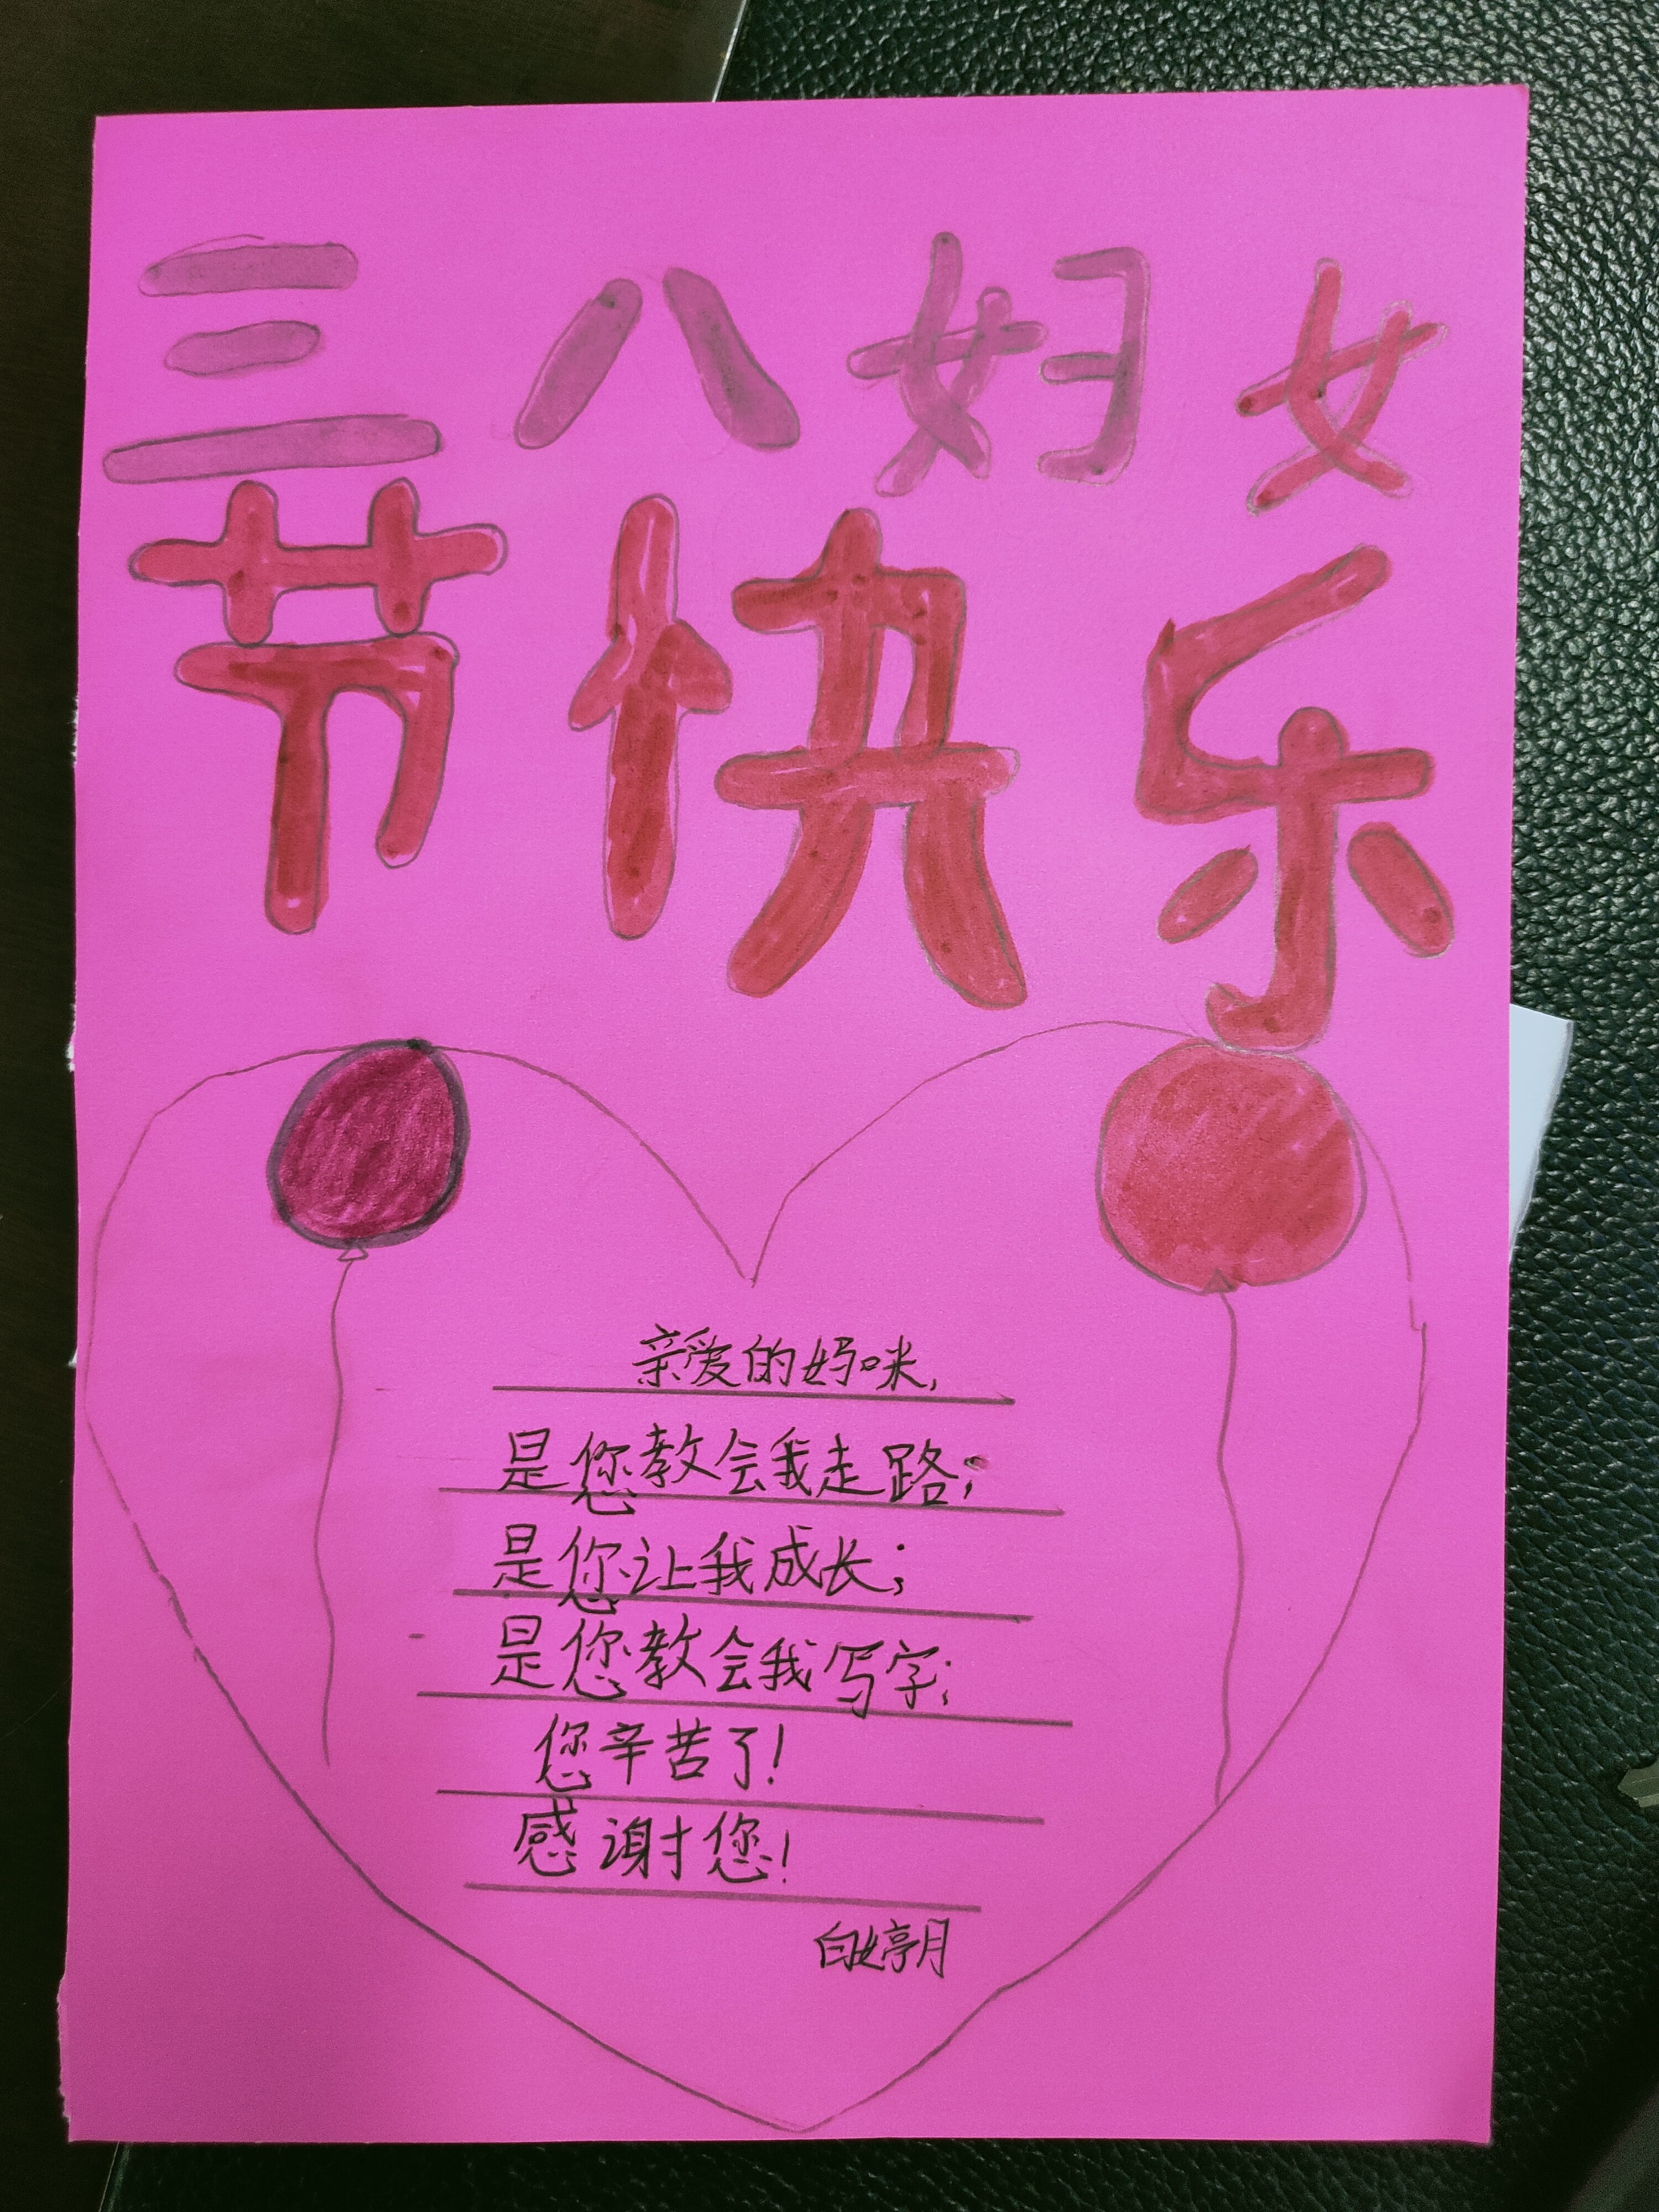 三八妇女
节快乐
亲爱的妈咪,
是您教会我走路;
是您让我成长;
是您教会我写字;
您辛苦了!
感谢您!
白婷月